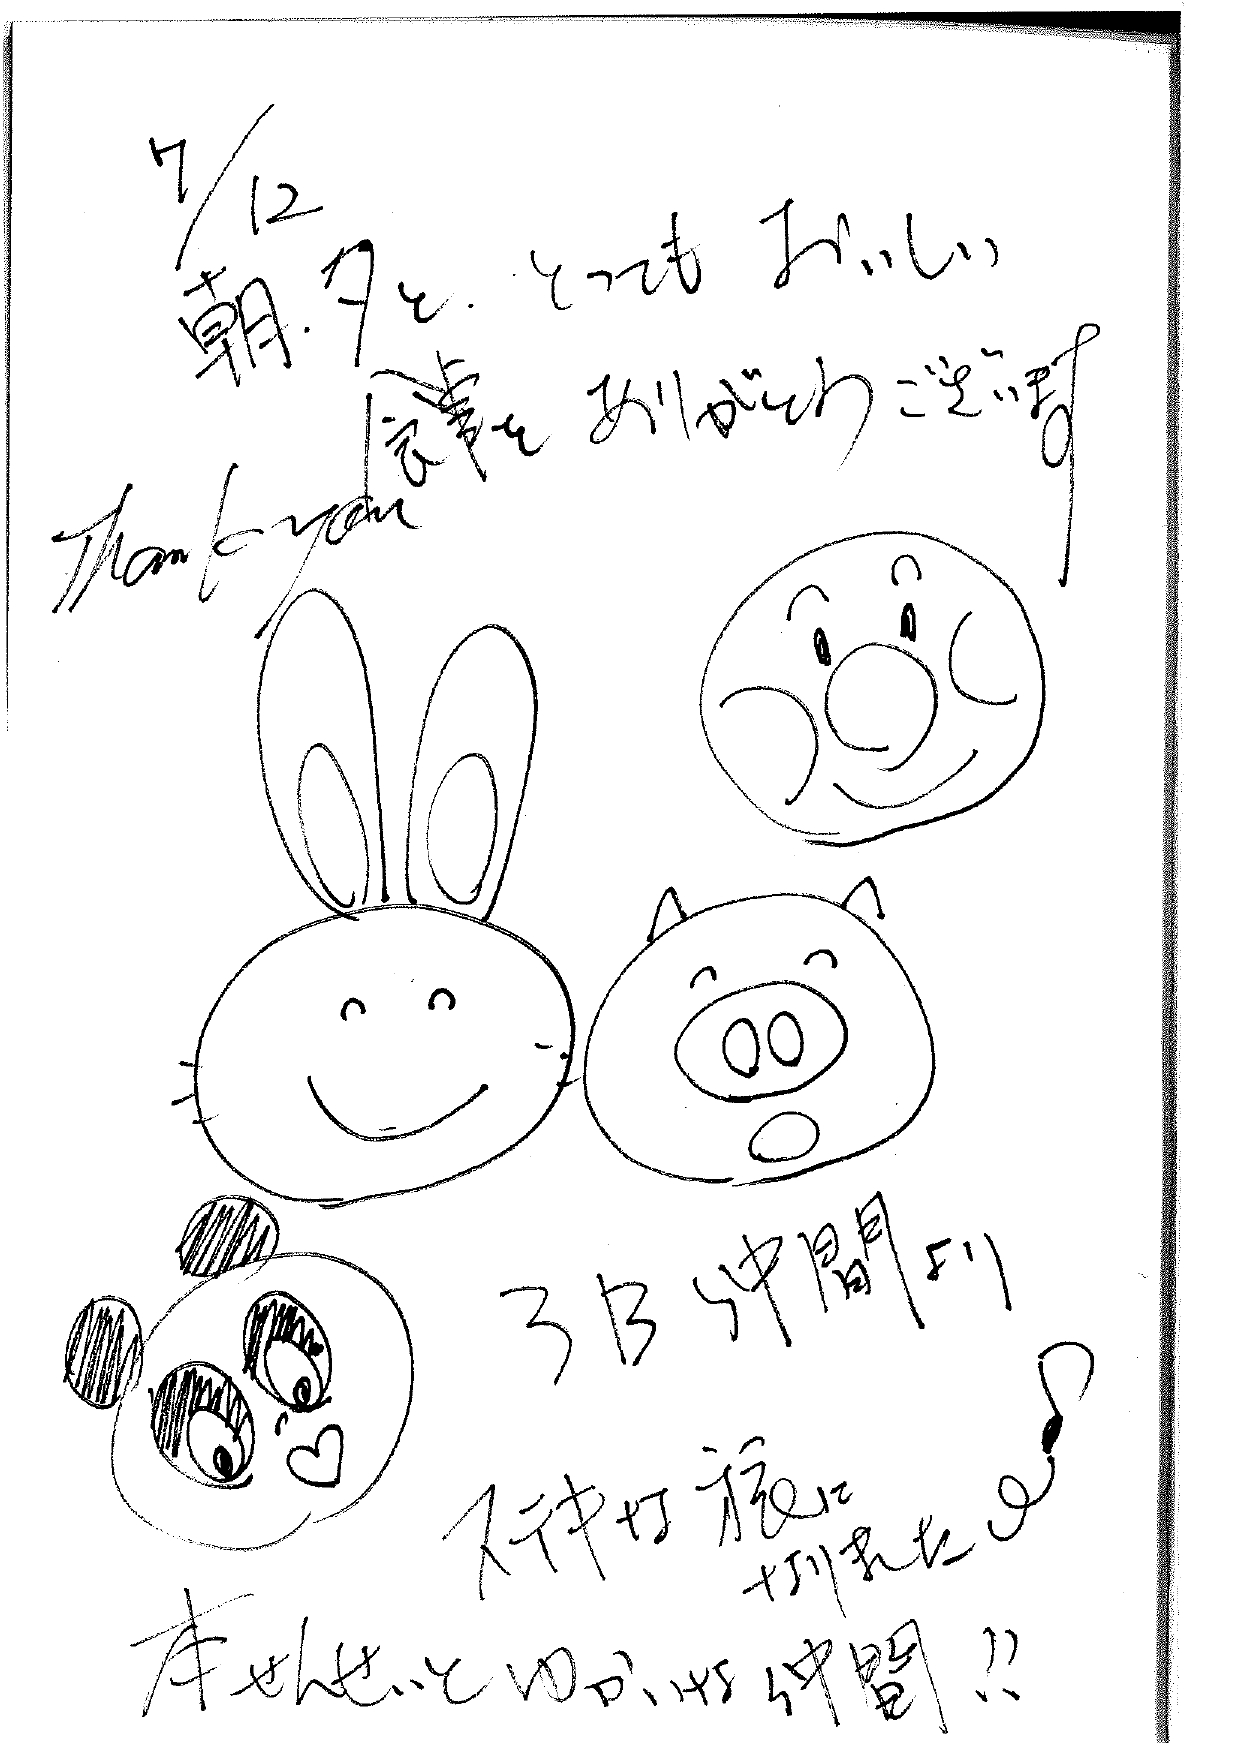 7/12
朝.夕と.とっても おいしい
食事を ありがとうございます
Thank you
3B 仲間より
ステキな旅に
なりました♪
本せんせいと ゆかいな仲間!!